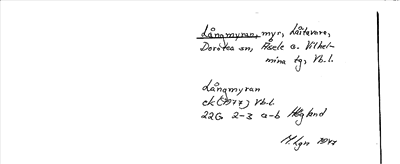 Långmyran, myr, Låitavare,
Dorotea sn, Åsele o. Vilhel-
mina tg, Vb.l.
Långmyran
ek (1977) Vb.l.
22G 2-3 a-b Högland
M.Lgn 1977